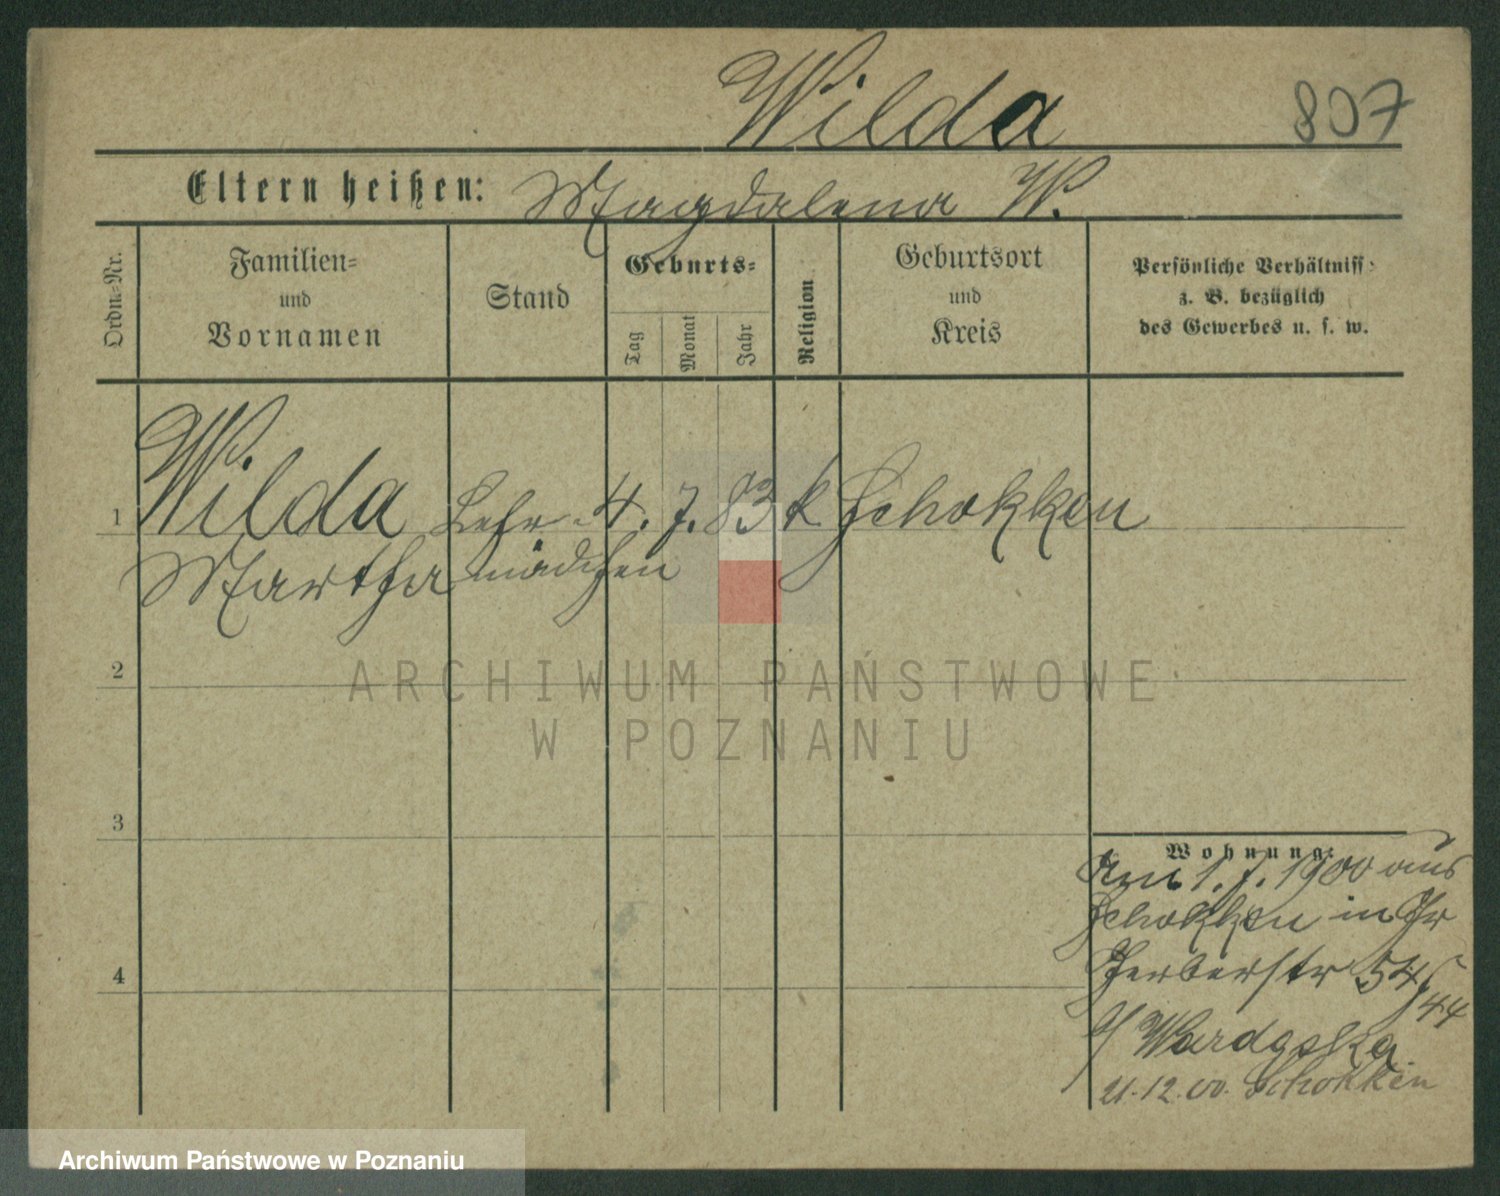 Wilda 807
Eltern heißen: Magdalena W.
Ordn.-Nr.
Familien-
und
Vornamen
Stand
Geburts-
Tag
Monat
Jahr
Religion
Geburtsort
und
Kreis
Persönliche Verhältniss
z. B. bezüglich
des Gewerbes u. s. w.
1 Wilda Lehr- 4. 7. 83 k Schokken
Martha mädchen
2
ARCHIWUM PAŃSTWOWE
W POZNANIU
3
Wohnung:
Am 1. 7. 1900 aus
Schokken in
54/44
b/
21.12.00. Schokken
4
Archiwum Państwowe w Poznaniu